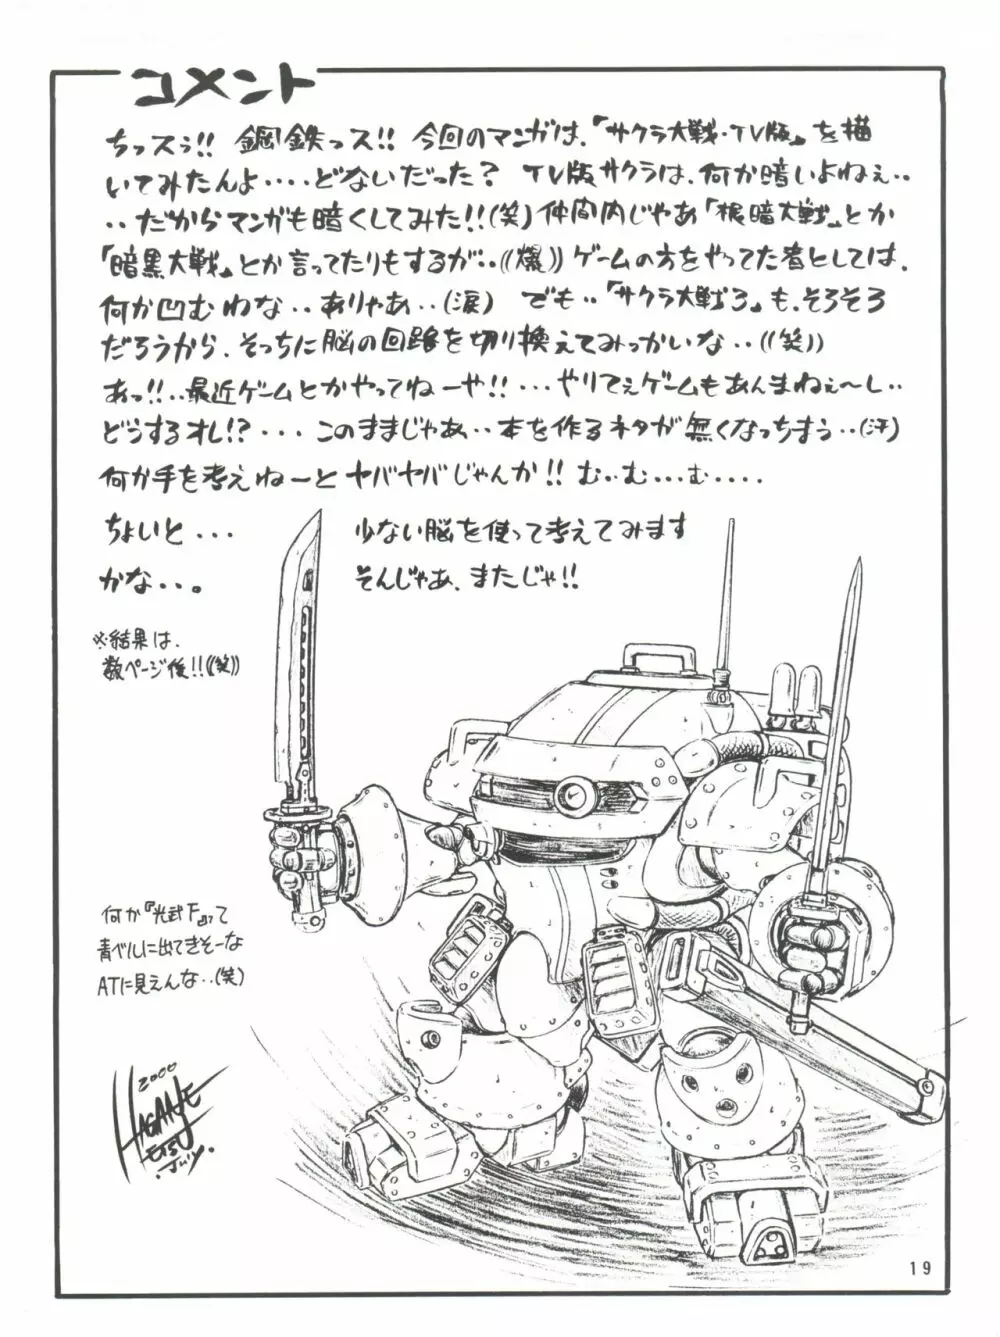 コメント
ちっスぅ!! 鋼鉄っス!! 今回のマンガは、「サクラ大戦・TV版」を描
いてみたんよ‥‥どないだった? TV版サクラは、何か暗いよねぇ‥
‥だからマンガも暗くしてみた!!(笑)仲間内じゃあ「根暗大戦」とか
「暗黒大戦」とか言ってたりもするが‥((爆))ゲームの方をやってた者としては、
何か凹むわな‥ありゃあ‥(涙) でも‥「サクラ大戦3」も、そろそろ
だろうから、そっちに脳の回路を切り換えてみっかいな‥((笑))
あっ!!‥最近ゲームとかやってねーや!!‥‥やりてぇゲームもあんまねぇ〜し‥
どうするオレ!?‥‥このままじゃあ‥本を作るネタが無くなっちまう‥(汗)
何か手を考えねーとヤバヤバじゃんか!! むぃむ‥‥む‥‥
ちょいと‥‥ 少ない脳を使って考えてみます
かな‥‥。 そんじゃあ、またじゃ!!
※結果は、
数ページ後!!((笑))
何か『光武F』って
青ベルに出てきそーな
ATに見えんな‥(笑)
2000
HAGANE
ETSU
July.
19